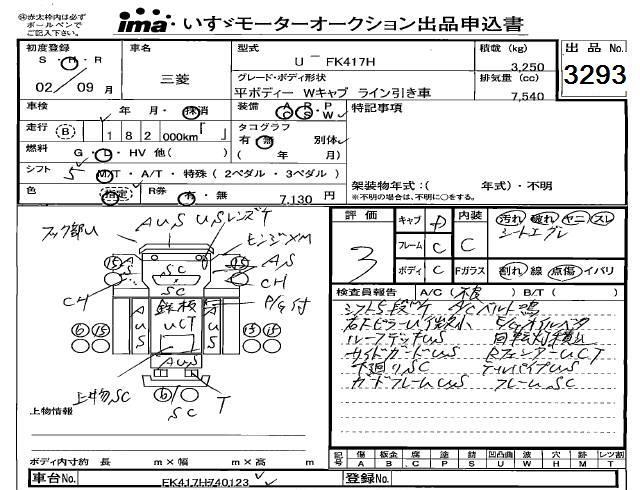 ㊟赤太枠内は必ず
ボールペンで
ご記入下さい。
ima いすゞモーターオークション出品申込書
初度登録
S・H・R
02 / 09 月
車名
三菱
型式
U － FK417H
グレード・ボディ形状
平ボディー Wキャブ ライン引き車
積載 (kg)
3,250
排気量 (cc)
7,540
出品 No.
3293
車検
年 月・抹消
装備 A・R・P
C・S・W
特記事項
走行 (B) 182 000km「 」
タコグラフ
有・無 別体
( 年 月)
燃料 G・L・HV 他( )
シフト 5 M/T・A/T・特殊 ( 2ペダル・3ペダル )
架装物年式:( 年式)・不明
※不明の場合は、不明に○をする。
色 指定 R券 有・無 7,130 円
評価
3
キャブ D
フレーム C
ボディ C
内装 C
Fガラス
汚れ 破れ ヤニ スレ
シートエグレ
割れ 線 点傷 イバリ
フック部U
AUS USレンズT
ヒンジXM
15 SC 15 AS
CH CH
P/G付
鉄板
UCT
AUS AUS
6 15 15 15
AUS
上物SC
6
SC T
検査員報告 A/C (不良) B/T ( )
シフト5段
ベルト鳴
ルーフデッキUS
回転灯積込
サイドガードUS RフェンダーUCT
下廻りSC テールパイプUS
ガードフレームUS フレームSC
上物情報
ボディ内寸約 長 m×幅 m×高 m
記号 傷 A 板金 B 腐 C 塗 P 錆 S 凹凸曲 U 波 W 穴 H 跡 M レツ割 T
車台No. FK417H740123
登録No.